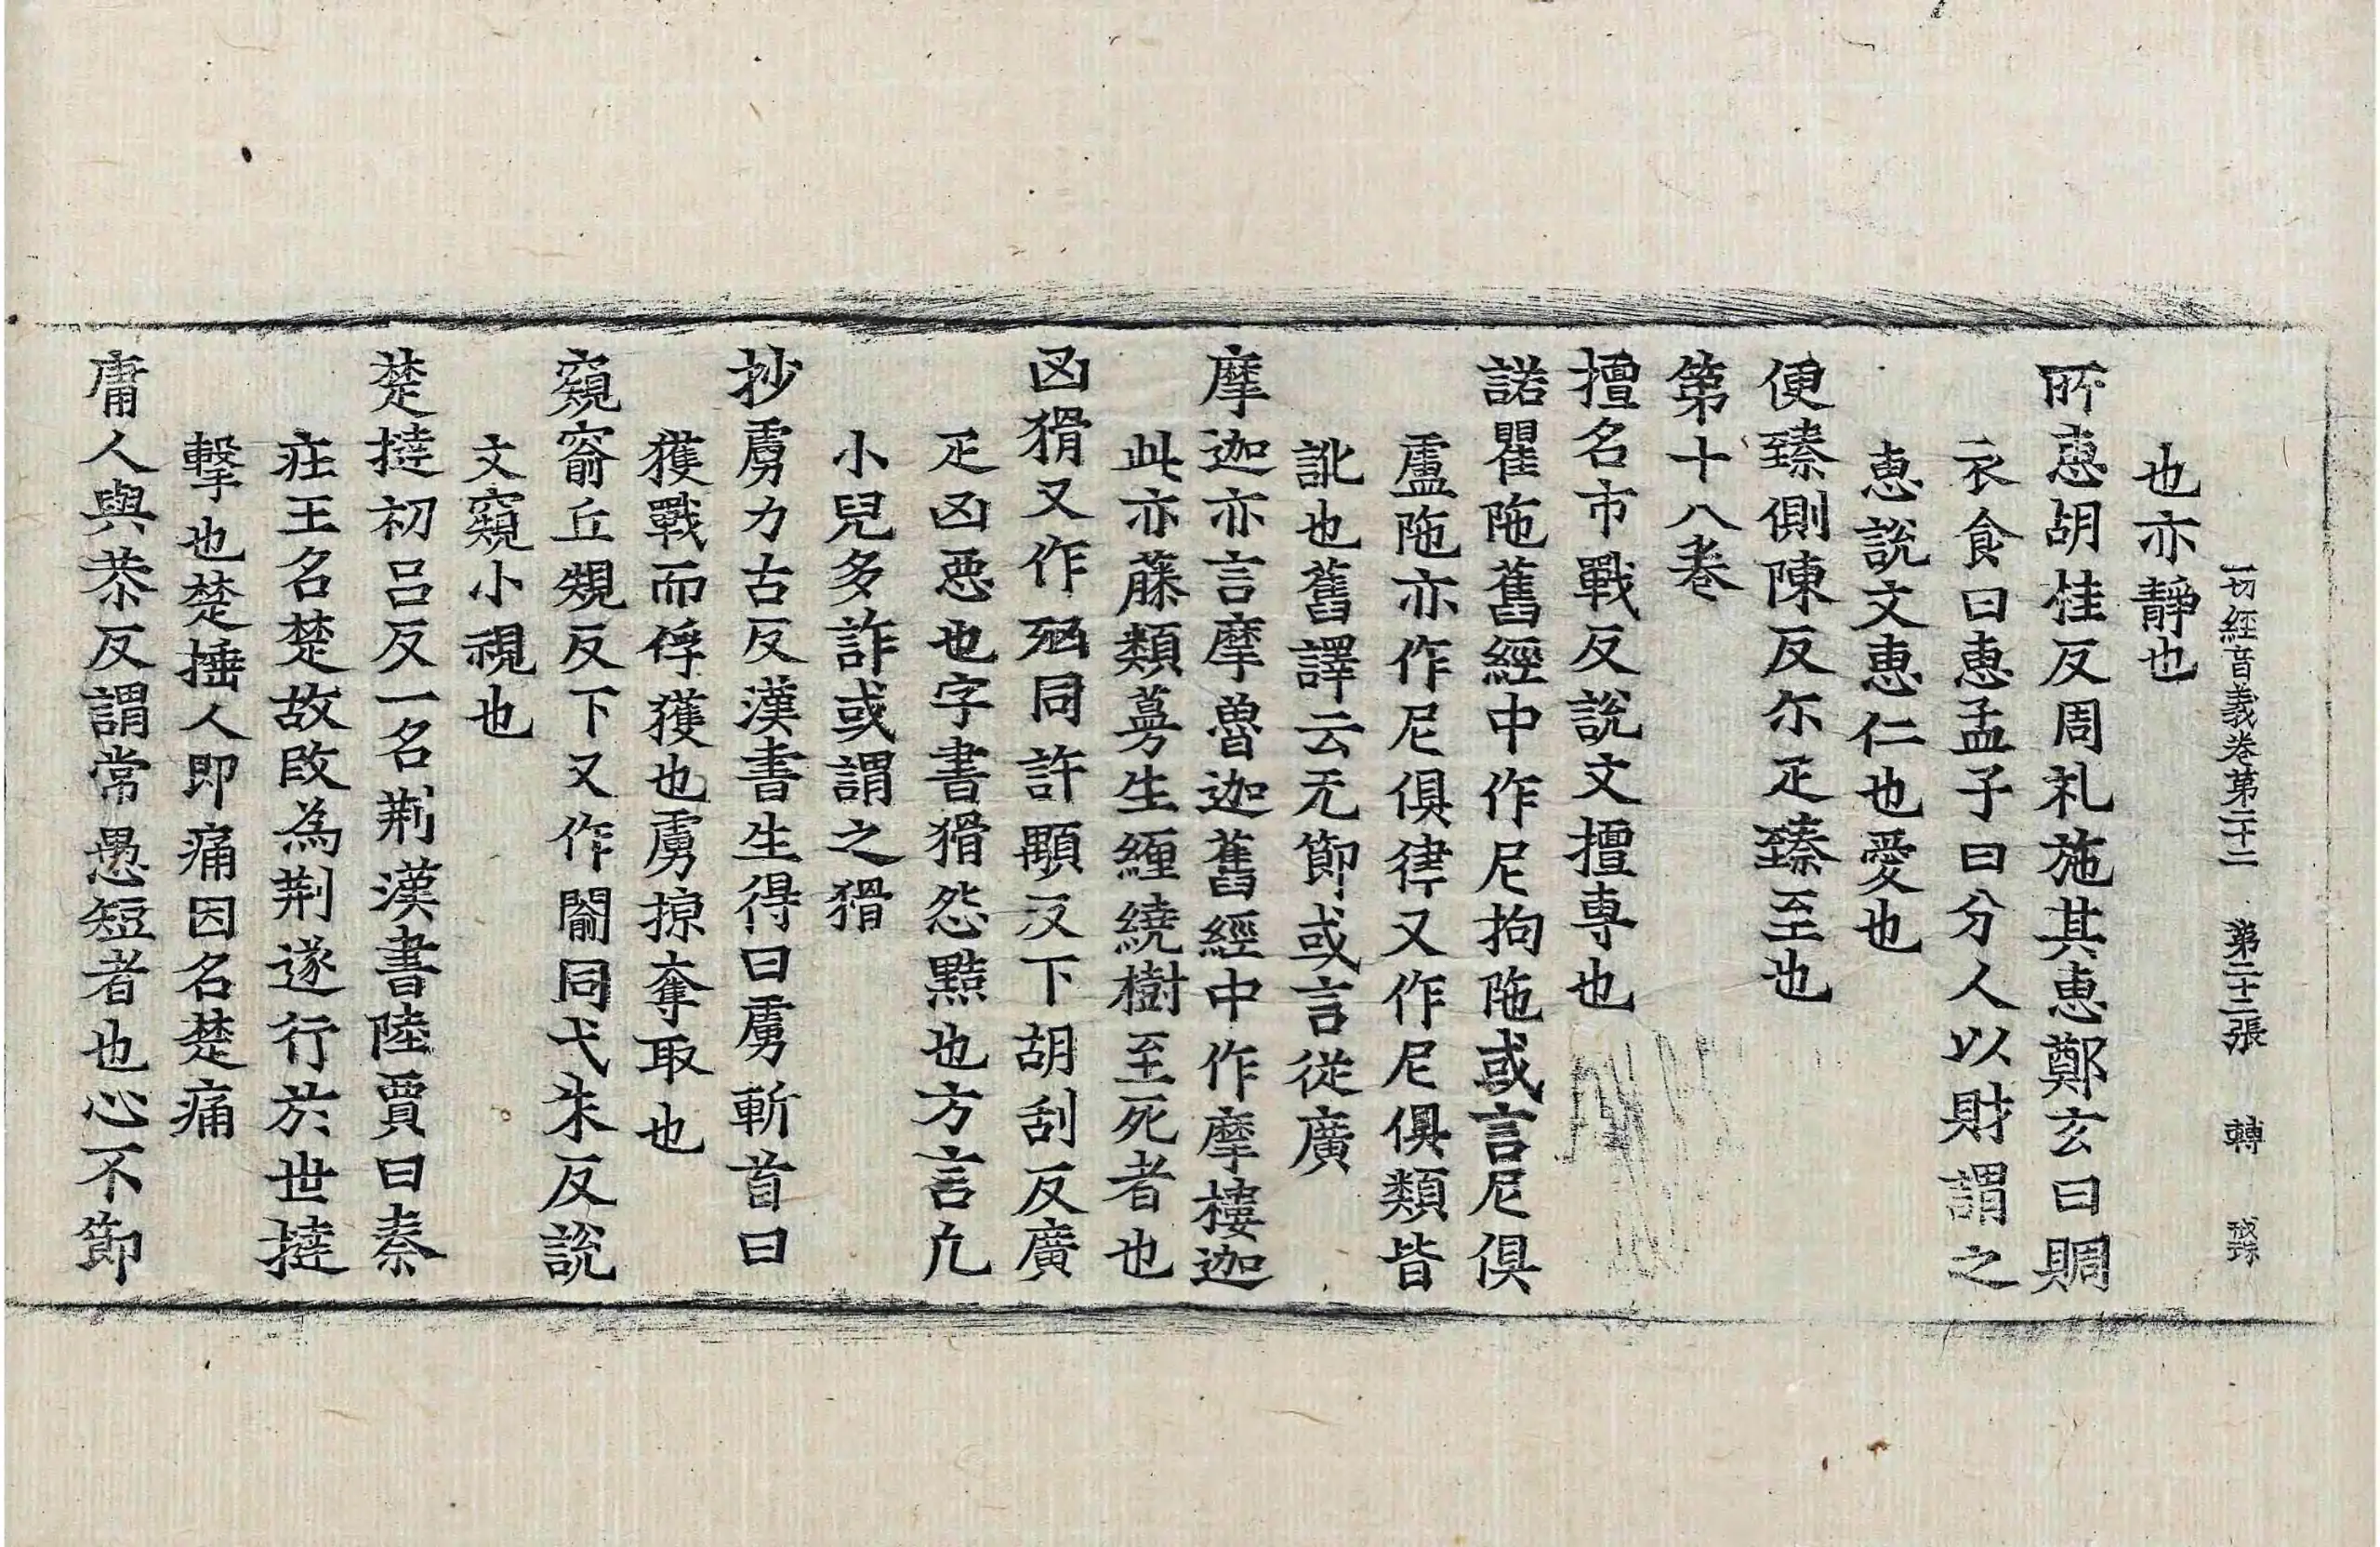 一切經音義卷第二十二 第二十二張 轉
也亦靜也
所惠胡桂反周礼施其惠鄭玄曰賙
衣食曰惠孟子曰分人以財謂之
惠說文惠仁也愛也
便臻側陳反尓疋臻至也
第十八卷
擅名市戰反說文擅專也
諾瞿陁舊經中作尼拘陁或言尼俱
盧陁亦作尼俱律又作尼俱類皆
訛也舊譯云无節或言從廣
摩迦亦言摩魯迦舊經中作摩樓迦
此亦藤類蔓生纒繞樹至死者也
凶猾又作𣧑同許顒反下胡刮反廣
疋凶惡也字書猾怨黠也方言凢
小兒多詐或謂之猾
抄虜力古反漢書生得曰虜斬首曰
獲戰而俘獲也虜掠奪取也
窺窬丘規反下又作闟同弋朱反說
文窺小視也
楚撻初呂反一名荆漢書陸賈曰秦
莊王名楚故改為荆遂行於世撻
擊也楚捶人即痛因名楚痛
庸人與恭反謂常愚短者也心不節